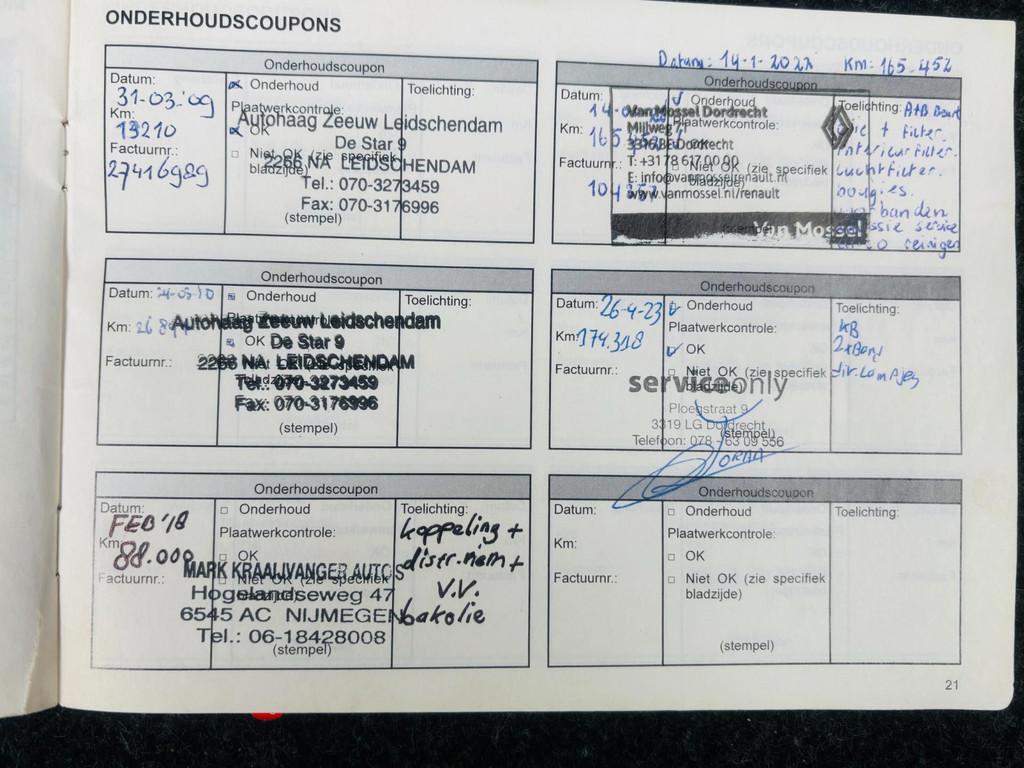 ONDERHOUDSCOUPONS
Onderhoudscoupon
Datum:
31-03-09
Km:
13210
Factuurnr.:
27416989
Onderhoud
Plaatwerkcontrole:
OK
Niet OK (zie specifiek
bladzijde)
(stempel)
Toelichting:
Autohaag Zeeuw Leidschendam
De Star 9
2266 NA LEIDSCHENDAM
Tel.: 070-3273459
Fax: 070-3176996
Datum: 14-1-2022 Km: 165.452
Onderhoudscoupon
Datum:
Km:
Factuurnr.:
Onderhoud
Plaatwerkcontrole:
OK
Niet OK (zie specifiek
bladzijde)
(stempel)
Van Mossel Dordrecht
Mijlweg
Dordrecht
T: +31 78 617 00 00
E: info@vanmosselrenault.nl
www.vanmossel.nl/renault
Van Mossel
Toelichting: A+B Beurt
olie + filter.
interieurfilter.
luchtfilter.
bougies.
banden
service
reinigen
Onderhoudscoupon
Datum:
Km:
Factuurnr.:
Onderhoud
OK
(stempel)
Toelichting:
Autohaag Zeeuw Leidschendam
De Star 9
2266 NA LEIDSCHENDAM
Tel.: 070-3273459
Fax: 070-3176996
Onderhoudscoupon
Datum: 26-4-23
Km: 174.318
Factuurnr.:
Onderhoud
Plaatwerkcontrole:
OK
Niet OK (zie specifiek
bladzijde)
(stempel)
serviceonly
Ploegstraat 9
3319 LG Dordrecht
Telefoon: 078 - 63 09 556
Toelichting:
KB
Onderhoudscoupon
Datum:
FEB '18
Km:
88.000
Factuurnr.:
Onderhoud
Plaatwerkcontrole:
OK
Niet OK (zie specifiek
bladzijde)
(stempel)
MARK KRAAIJVANGER AUTO'S
Hogelandseweg 47
6545 AC NIJMEGEN
Tel.: 06-18428008
Toelichting:
koppeling +
distr.riem +
V.V.
bakolie
Onderhoudscoupon
Datum:
Km:
Factuurnr.:
Onderhoud
Plaatwerkcontrole:
OK
Niet OK (zie specifiek
bladzijde)
(stempel)
Toelichting:
21